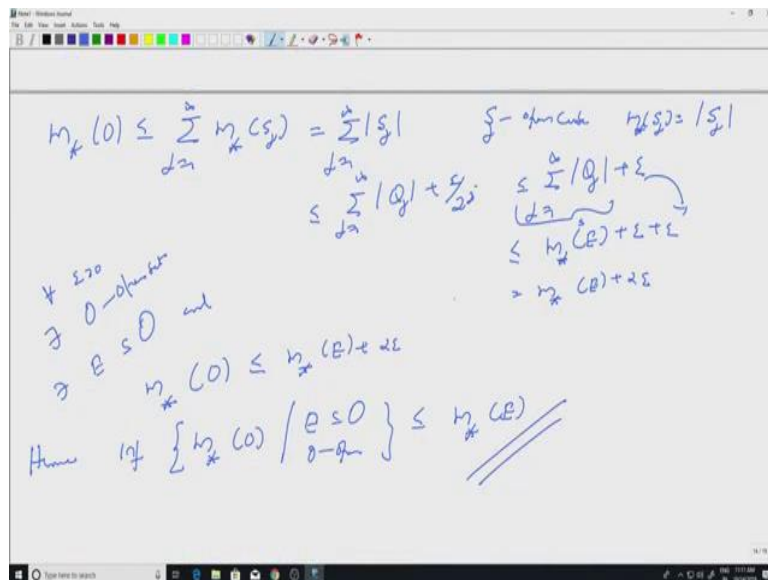 Note1 - Windows Journal
File Edit View Insert Actions Tools Help
m_*(O) ≤ ∑_{j=1}^∞ m_*(S_j) = ∑_{j=1}^∞ |S_j|
S_j - open cube m_*(S_j) = |S_j|
≤ ∑_{j=1}^∞ |Q_j| + ε/2^j
≤ ∑_{j=1}^∞ |Q_j| + ε
≤ m_*(E) + ε + ε
= m_*(E) + 2ε
∀ ε>0
∃ O - open set
∋ E ⊆ O and
m_*(O) ≤ m_*(E) + 2ε
Hence inf { m_*(O) / E ⊆ O O - open } ≤ m_*(E)
Type here to search
ENG 11:11 AM